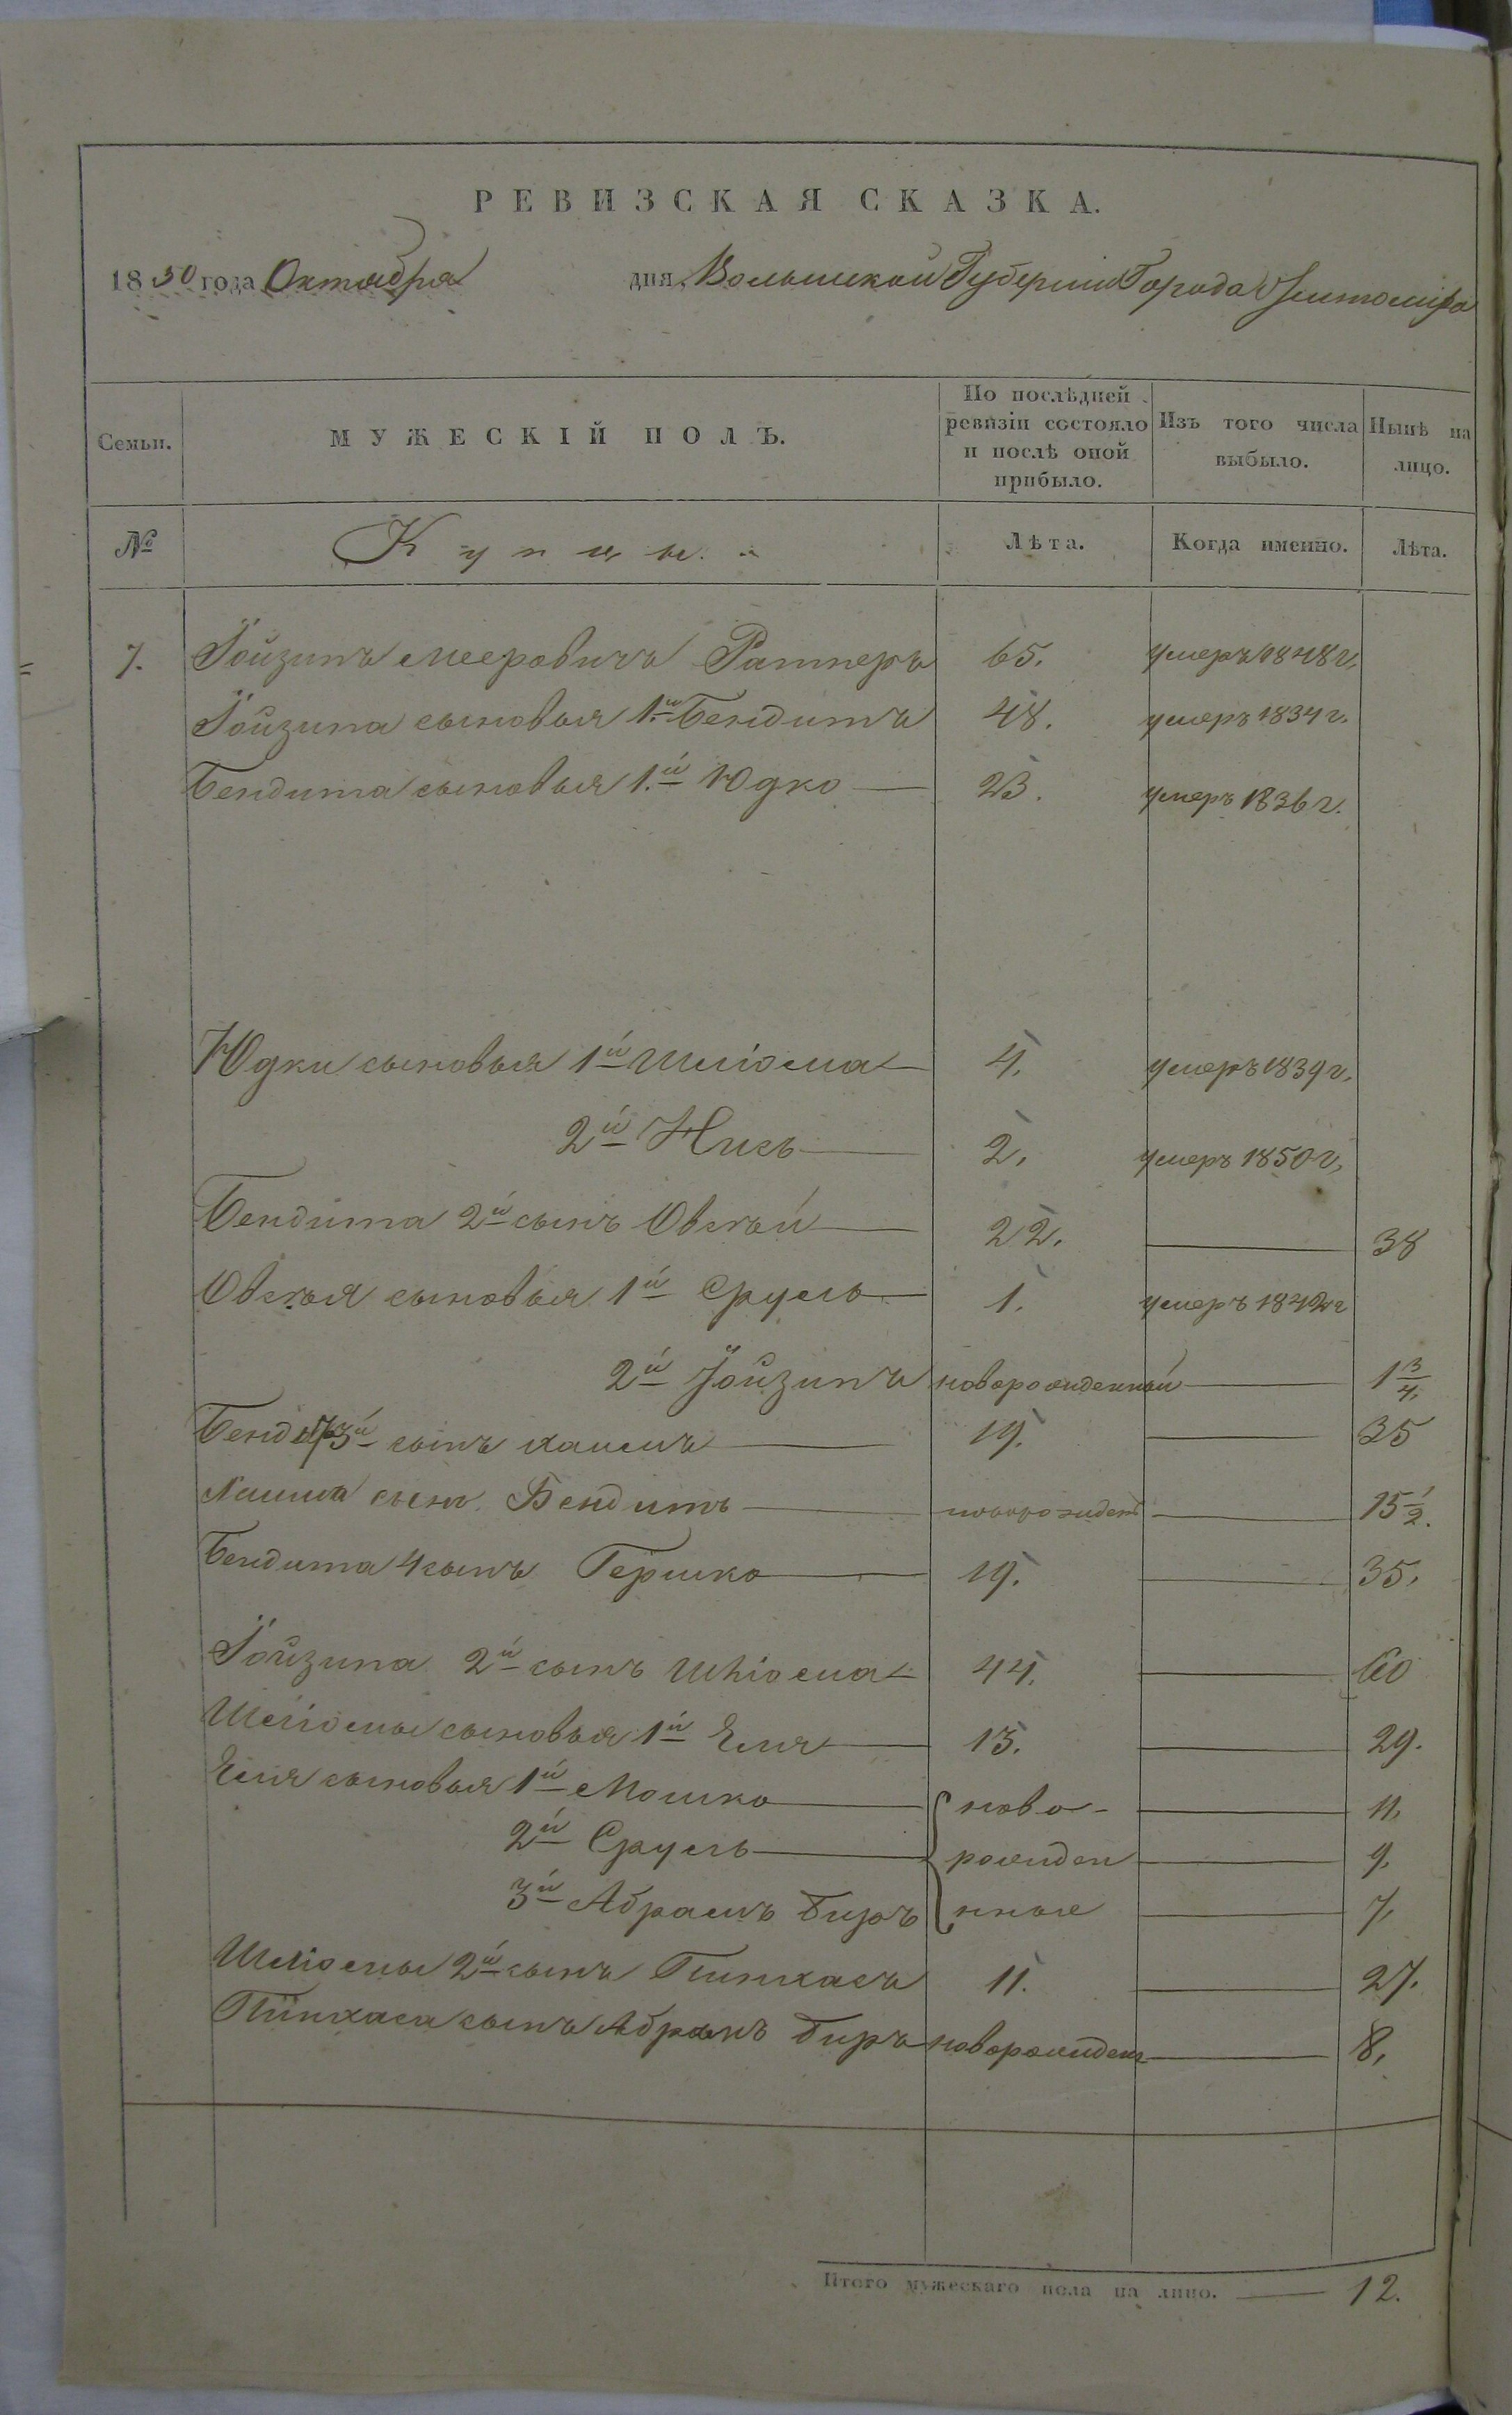 РЕВИЗСКАЯ СКАЗКА.
1850 года Октября дня Волынской Губернии Города Житомира
Семьи. МУЖЕСКІЙ ПОЛЪ. По послѣдней ревизіи состояло и послѣ оной прибыло. Изъ того числа выбыло. Нынѣ на лицо.
№ Купцы. Лѣта. Когда именно. Лѣта.
7. Іойзипъ Мееровичъ Ратнеръ 65. умеръ 1848 г.
Іойзипа сыновья 1.й Бендитъ 48. умеръ 1834 г.
Бендита сыновья 1.й Юдко 23. умеръ 1836 г.
Юдки сыновья 1й Шліома 4. умеръ 1839 г.
2й Нисъ 2. умеръ 1850 г.
Бендита 2й сынъ Овсъй 22. 38
Овсъя сыновья 1й Сруль 1. умеръ 1842 г
2й Іойзипъ новорожденный 1 3/4
3й сынъ Хаимъ 19. 35
Хаима сынъ Бендитъ новорожден 15 1/2.
Бендита 4 сынъ Гершко 19. 35.
Іойзипа 2й сынъ Шліома 44. 60
Шліомы сыновья 1й Еля 13. 29.
Еля сыновья 1й Мошко ново- 11.
2й Сруль рожден 9.
3й Абрамъ Биръ нные 7.
Шліомы 2й сынъ Пинхасъ 11. 27.
Пинхаса сынъ Абрамъ Биръ новорожден 8.
Итого мужескаго пола на лицо. 12.